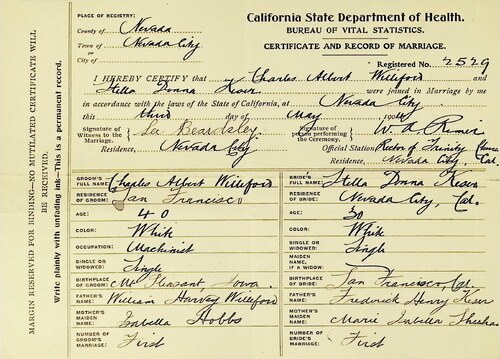 PLACE OF REGISTRY:
County of Nevada
Town of Nevada City
or
City of
California State Department of Health.
BUREAU OF VITAL STATISTICS.
CERTIFICATE AND RECORD OF MARRIAGE.
Registered No. 2529
I HEREBY CERTIFY that Charles Albert Williford and
Stella Donna Keser were joined in Marriage by me
in accordance with the laws of the State of California, at Nevada City
this third day of May 190
Signature of Witness to the Marriage. Lee Beardsley
Signature of person performing the Ceremony. W. A. Rimer
Residence, Nevada City
Official Station Rector of Trinity Church
Residence, Nevada City, Cal.
GROOM'S FULL NAME: Charles Albert Williford
RESIDENCE OF GROOM: San Francisco
AGE: 40
COLOR: White
OCCUPATION: Machinist
SINGLE OR WIDOWED: Single
BIRTHPLACE OF GROOM: Mt Pleasant, Iowa.
FATHER'S NAME: William Harvey Williford
MOTHER'S MAIDEN NAME: Isabella Hobbs
NUMBER OF GROOM'S MARRIAGE: First
BRIDE'S FULL NAME: Stella Donna Keser
RESIDENCE OF BRIDE: Nevada City, Cal.
AGE: 30
COLOR: White
SINGLE OR WIDOWED: Single
MAIDEN NAME, IF A WIDOW:
BIRTHPLACE OF BRIDE: San Francisco, Cal.
FATHER'S NAME: Frederick Henry Keser
MOTHER'S MAIDEN NAME: Marie Isabella
NUMBER OF BRIDE'S MARRIAGE: First
MARGIN RESERVED FOR BINDING—NO MUTILATED CERTIFICATE WILL
BE RECEIVED.
Write plainly with unfading ink—This is a permanent record.